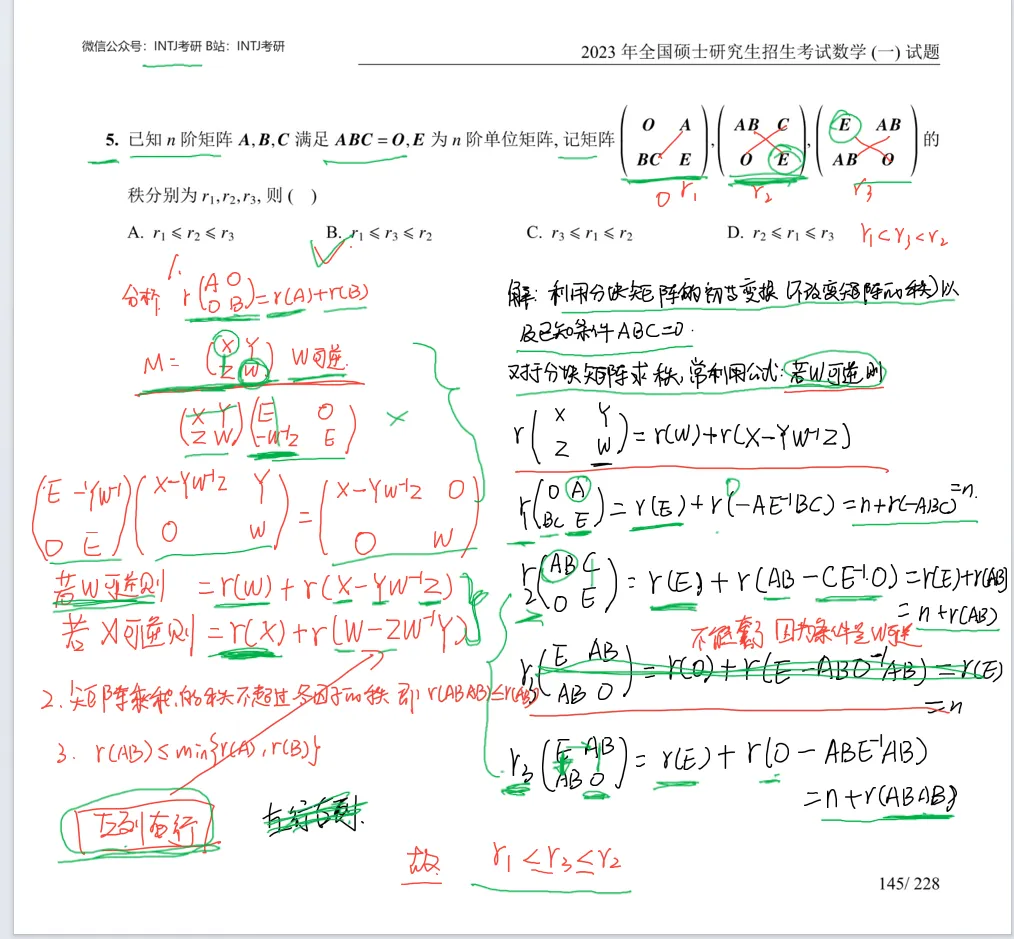 微信公众号：INTJ考研 B站：INTJ考研
2023 年全国硕士研究生招生考试数学 (一) 试题
5. 已知 n 阶矩阵 A,B,C 满足 ABC = O,E 为 n 阶单位矩阵, 记矩阵 (O A; BC E), (AB C; O E), (E AB; AB O) 的
0 r₁ r₂ r₃
秩分别为 r₁,r₂,r₃, 则 ( )
A. r₁ ⩽ r₂ ⩽ r₃ B. r₁ ⩽ r₃ ⩽ r₂ C. r₃ ⩽ r₁ ⩽ r₂ D. r₂ ⩽ r₁ ⩽ r₃ r₁<r₃<r₂
1.
分析 r(A O; O B)=r(A)+r(B)
M = (X Y; Z W) W可逆.
(X Y; Z W)(E O; -W⁻¹Z E) ×
(E -YW⁻¹; O E)(X-YW⁻¹Z Y; O W) = (X-YW⁻¹Z O; O W)
若W可逆则 = r(W) + r(X-YW⁻¹Z)
若X可逆则 = r(X)+r(W-ZW⁻¹Y)
2. 矩阵乘积的秩不超过各因子的秩 即 r(ABAB)≤r(AB)
3. r(AB) ≤ min{r(A), r(B)}
左列右行
左行右列.
解: 利用分块矩阵的初等变换 (不改变矩阵的秩) 以
及已知条件ABC=0.
对于分块矩阵求秩, 常利用公式: 若W可逆则
r(X Y; Z W) = r(W)+r(X-YW⁻¹Z)
r₁(O A; BC E) = r(E)+r(-AE⁻¹BC) = n+r(-ABC) = n.
0
r₂(AB C; O E) = r(E) + r(AB - CE⁻¹·0) = r(E)+r(AB)
= n + r(AB)
不能套了 因为条件是W可逆
r₃(E AB; AB O) = r(0) + r(E-ABO⁻¹AB) = r(E)
= n
r₃(E AB; AB O) = r(E) + r(0 - ABE⁻¹AB)
= n + r(ABAB)
故 r₁ ≤ r₃ ≤ r₂
145/ 228